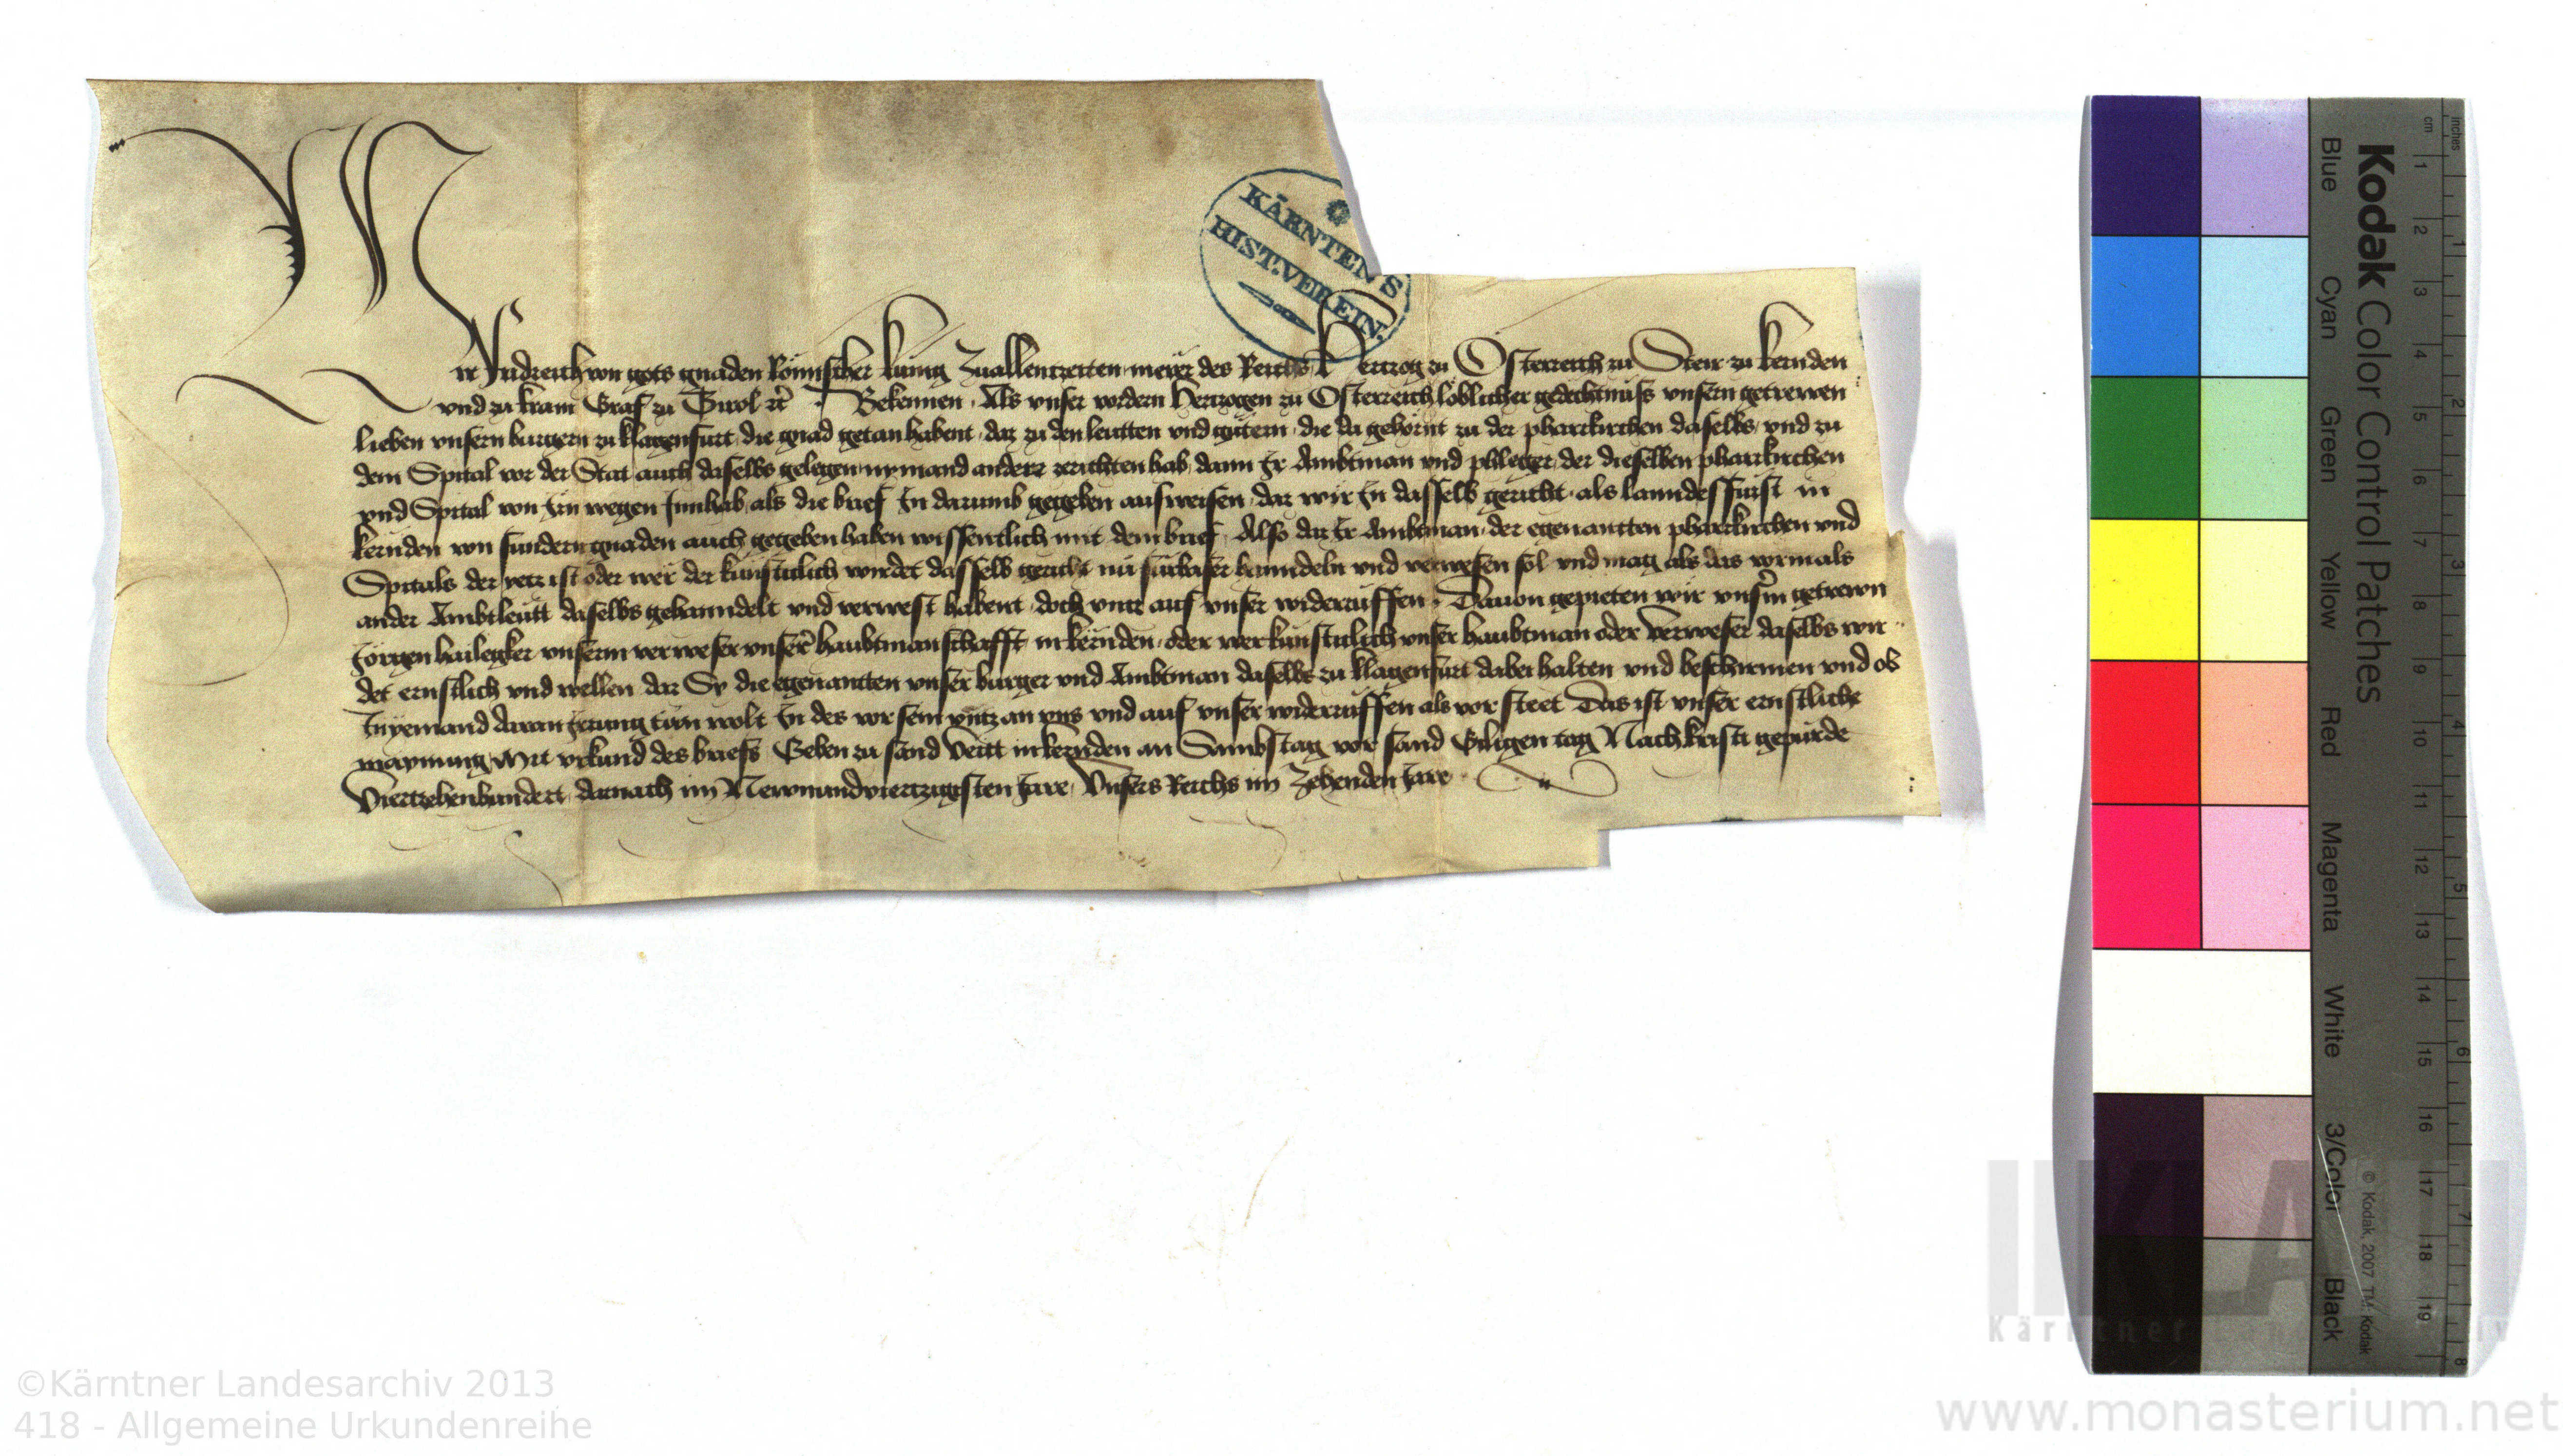 KÄRNTENS
HIST. VEREIN.
Wir Fridreich von gots gnaden Römischer kunig Zuallenczeiten merer des Reichs Herczog zu Österreich zu Steir zu kernden
vnd zu krain Graf zu Tirol etc. Bekennen. Als vnser vordern Herczogen zu Österreich löblicher gedechtnüss vnsern getrewen
lieben vnsern burgern zu klagenfurt, die gnad getan habent, daz zu den leutten vnd gütern, die da gehornt zu der pharrkirchen daselbs, vnd zu
dem Spital vor der Stat auch daselbs gelegen nymand anderr zerichten hab, dann Ir Ambtman vnd phleger, der dieselben pharrkirchen
vnd Spital von Irn wegen Innhab, als die brief In darumb gegeben ausweisen, daz wir In dasselb gericht, als lanndesfürst in
kernden von sundern gnaden auch gegeben haben wissentlich mit dem brief, Also daz Ir Ambtman, der egenantten pharrkirchen vnd
Spitals der yecz ist oder wer der künfticlich wirdet dasselb gericht nu fürbaser hanndeln vnd verwesen sol vnd mag als das vormals
ander Ambtleutt daselbs gehanndelt vnd verwest habent, doch vncz auf vnser widerrüffen. Dauon gepieten wir vnserm getrewn
Jörgen hailegker vnserm verweser vnserr haubtmanschafft in kernden, oder wer künfticlich vnser haubtman oder verweser daselbs wir
det ernstlich vnd wellen daz Sy die egenantten vnser burger vnd Ambtman daselbs zu klagenfurt dabei halten vnd beschirmen vnd ob
In yemand daran Irrung tun wolt In des vor sein vncz an vns vnd auf vnser widerrüffen als vor steet Das ist vnser ernstliche
maynung, Mit vrkund des briefs Geben zu sand Veitt in kernden an Sambstag vor sand Giligen tag Nach kristi gepürde
Vierczehenhundert, darnach im Newnundvierczigisten Jare, Vnsers Reichs im Zehenden Jare
Kodak Color Control Patches
Blue Cyan Green Yellow Red Magenta White 3/Color Black
© Kodak, 2007 TM: Kodak
inches 1 2 3 4 5 6 7 8
cm 1 2 3 4 5 6 7 8 9 10 11 12 13 14 15 16 17 18 19
©Kärntner Landesarchiv 2013
418 - Allgemeine Urkundenreihe
www.monasterium.net